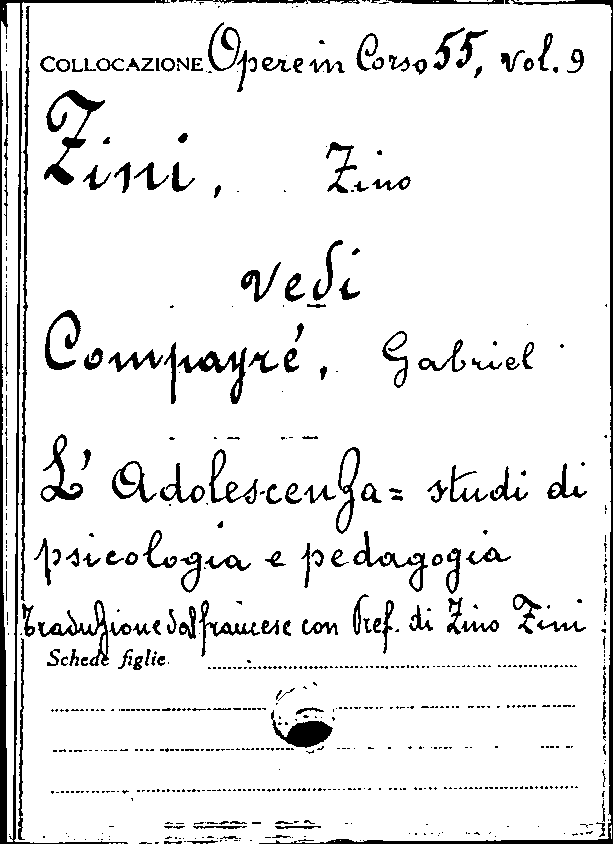 COLLOCAZIONE Opere in Corso 55, vol. 9
Zini, Zino
vedi
Compayré, Gabriel
L' Adolescenza = studi di
psicologia e pedagogia
Traduzione dal francese con Pref. di Zino Zini
Schede figlie